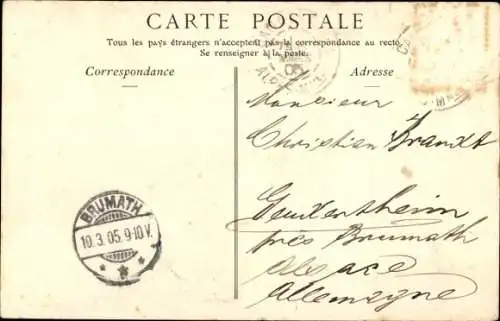 CARTE POSTALE
Tous les pays étrangers n'acceptent pas la correspondance au recto.
Se renseigner à la poste.
Correspondance
Adresse
Monsieur
Christian Brandt
près Brumath
Alsace
Allemagne
BRUMATH
10.3.05.9-10V.